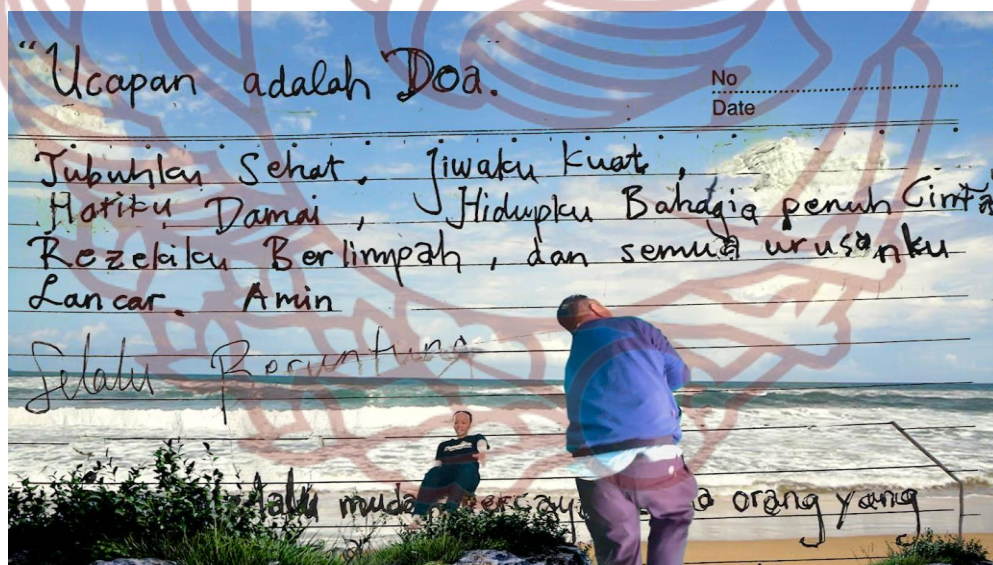 "Ucapan adalah Doa.
No
Date
Tubuhku Sehat, Jiwaku Kuat,
Hatiku Damai, Hidupku Bahagia penuh Cinta
Rezekiku Berlimpah, dan semua urusanku
Lancar. Amin
Selalu Beruntung
orang yang